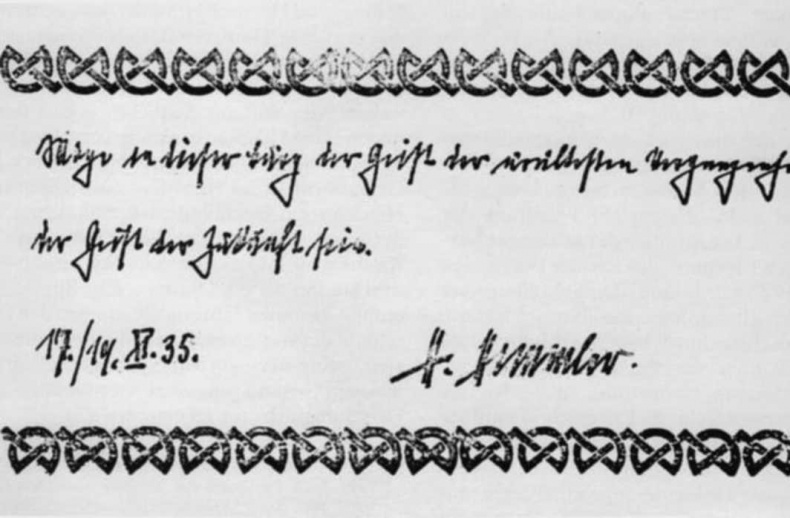 Möge in dieser Burg der Geist der uraltesten Vergangenhe
der Geist der Zukunft sein.
17./19. XI. 35. H. Himmler.